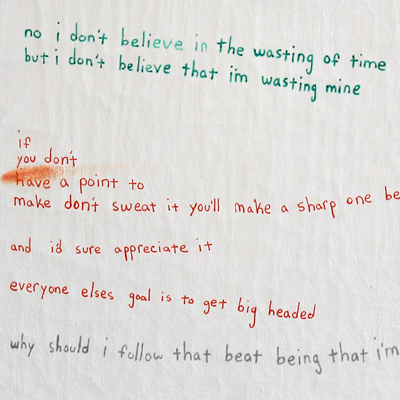 no i don't believe in the wasting of time
but i don't believe that i'm wasting mine
if
you don't
have a point to
make don't sweat it you'll make a sharp one be
and i'd sure appreciate it
everyone elses goal is to get big headed
why should i follow that beat being that i'm